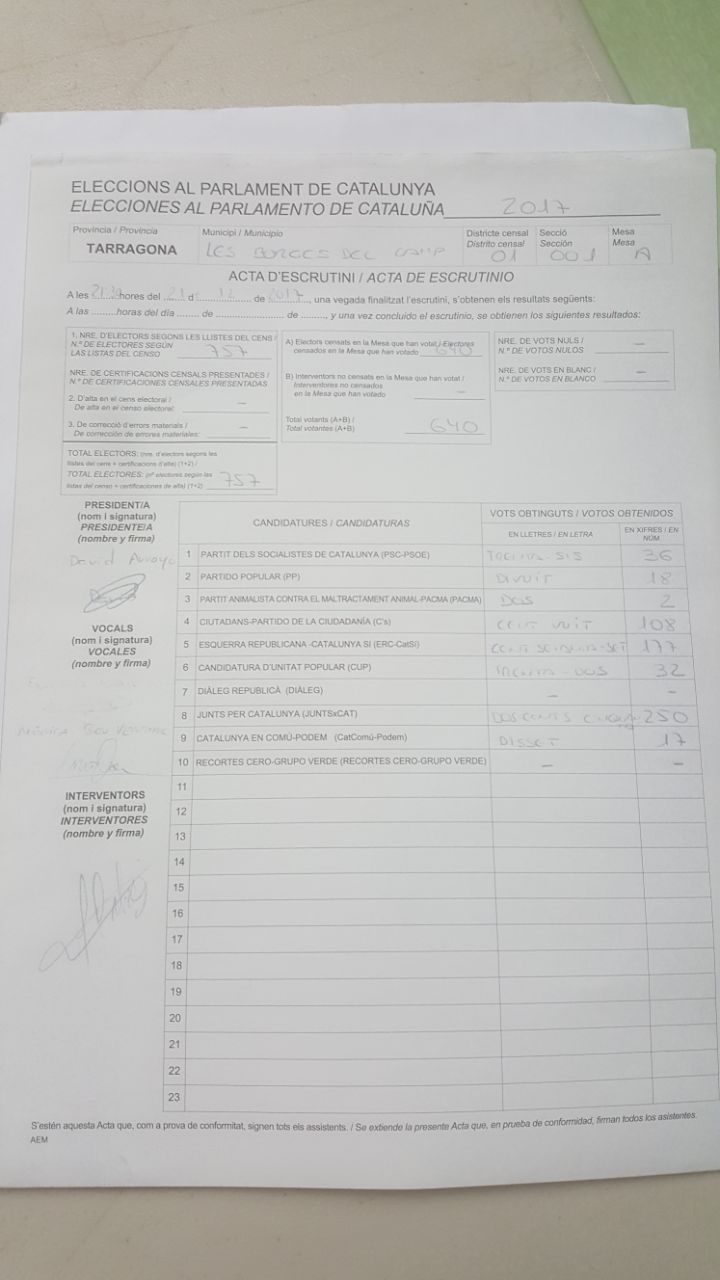 ELECCIONS AL PARLAMENT DE CATALUNYA
ELECCIONES AL PARLAMENTO DE CATALUÑA 2017
Provincia / Provincia
TARRAGONA
Municipi / Municipio
LES BORGES DEL CAMP
Districte censal
Distrito censal
01
Secció
Sección
001
Mesa
Mesa
A
ACTA D'ESCRUTINI / ACTA DE ESCRUTINIO
A les hores del 21 d 12 de 2017, una vegada finalitzat l'escrutini, s'obtenen els resultats següents:
A las ........horas del día ....... de ............................ de ........, y una vez concluido el escrutinio, se obtienen los siguientes resultados:
1. NRE. D'ELECTORS SEGONS LES LLISTES DEL CENS /
N.º DE ELECTORES SEGÚN
LAS LISTAS DEL CENSO 757
NRE. DE CERTIFICACIONS CENSALS PRESENTADES /
N.º DE CERTIFICACIONES CENSALES PRESENTADAS
2. D'alta en el cens electoral /
De alta en el censo electoral: —
3. De correcció d'errors materials /
De corrección de errores materiales: —
TOTAL ELECTORS: (nre. d'electors segons les
llistes del cens + certificacions d'alta) (1+2) /
TOTAL ELECTORES: (nº electores según las
listas del censo + certificaciones de alta) (1+2) 757
A) Electors censats en la Mesa que han votat / Electores
censados en la Mesa que han votado 640
B) Interventors no censats en la Mesa que han votat /
Interventores no censados
en la Mesa que han votado —
Total votants (A+B) /
Total votantes (A+B) 640
NRE. DE VOTS NULS /
N.º DE VOTOS NULOS —
NRE. DE VOTS EN BLANC /
N.º DE VOTOS EN BLANCO —
PRESIDENT/A
(nom i signatura)
PRESIDENTE/A
(nombre y firma)
David Arroyo
VOCALS
(nom i signatura)
VOCALES
(nombre y firma)
INTERVENTORS
(nom i signatura)
INTERVENTORES
(nombre y firma)
CANDIDATURES / CANDIDATURAS
VOTS OBTINGUTS / VOTOS OBTENIDOS
EN LLETRES / EN LETRA
EN XIFRES / EN NÚM.
1 PARTIT DELS SOCIALISTES DE CATALUNYA (PSC-PSOE) TRENTA-SIS 36
2 PARTIDO POPULAR (PP) DIVUIT 18
3 PARTIT ANIMALISTA CONTRA EL MALTRACTAMENT ANIMAL-PACMA (PACMA) DOS 2
4 CIUTADANS-PARTIDO DE LA CIUDADANÍA (C's) CENT VUIT 108
5 ESQUERRA REPUBLICANA -CATALUNYA SÍ (ERC-CatSí) CENT SETANTA-SET 177
6 CANDIDATURA D'UNITAT POPULAR (CUP) TRENTA-DOS 32
7 DIÀLEG REPUBLICÀ (DIÀLEG) — —
8 JUNTS PER CATALUNYA (JUNTSxCAT) DOS-CENTS 250
9 CATALUNYA EN COMÚ-PODEM (CatComú-Podem) DISSET 17
10 RECORTES CERO-GRUPO VERDE (RECORTES CERO-GRUPO VERDE) — —
11
12
13
14
15
16
17
18
19
20
21
22
23
S'estén aquesta Acta que, com a prova de conformitat, signen tots els assistents. / Se extiende la presente Acta que, en prueba de conformidad, firman todos los asistentes.
AEM